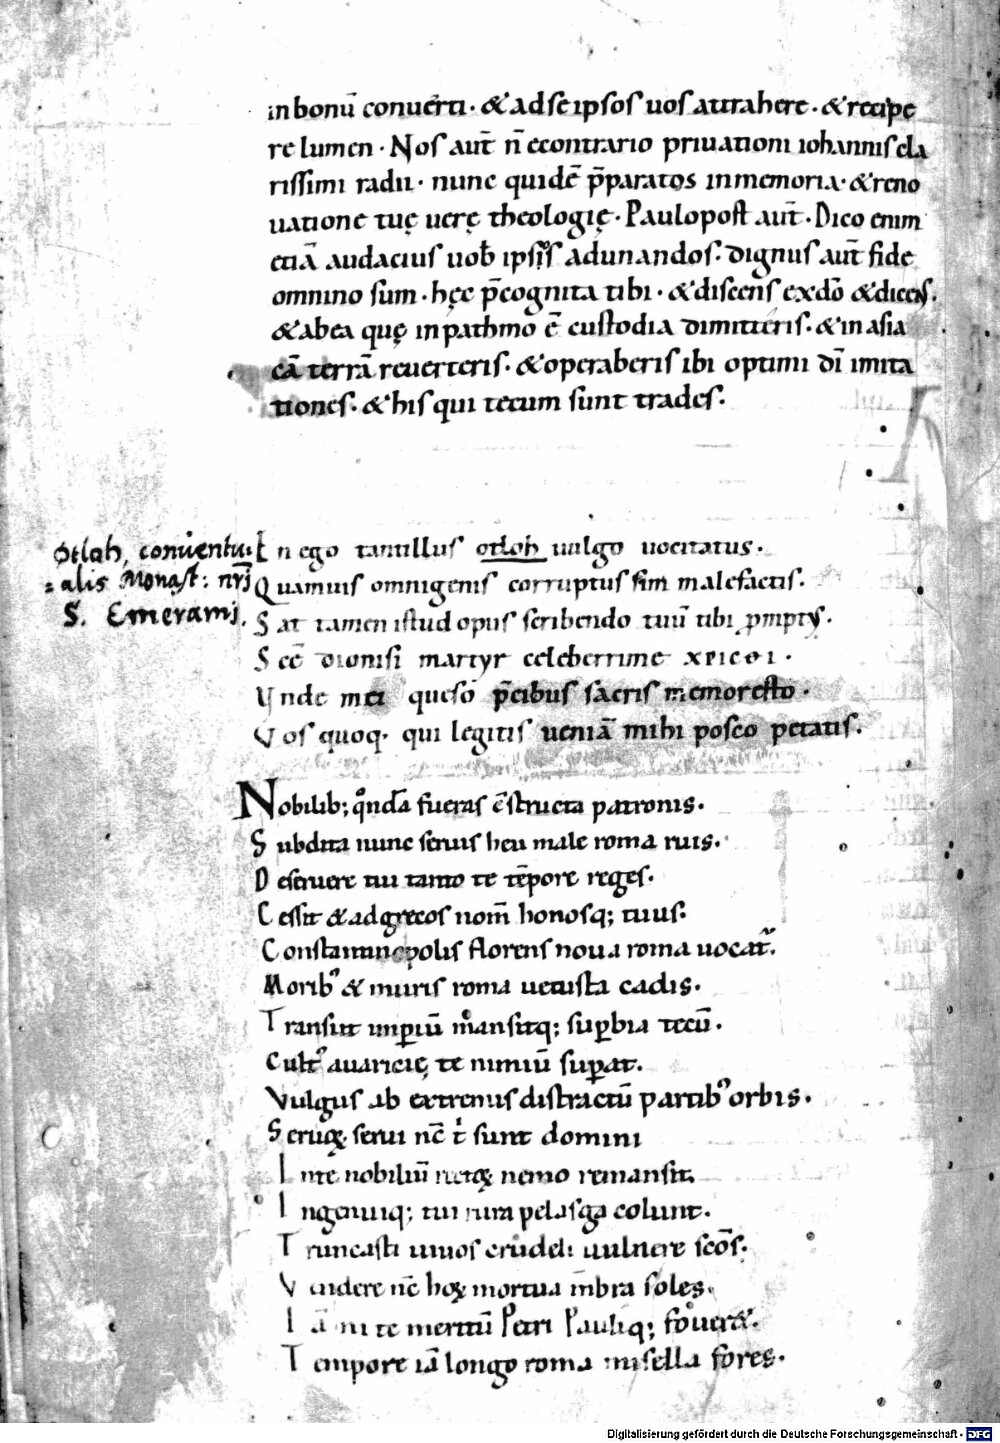 in bonū conuerti · & ad se ipsos uos attrahere · & recipe
re lumen · Nos aut̄ n̄ econtrario priuationi iohannis cla
rissimi radii · nunc quidē p̄paratos in memoria · & reno
uatione tuę uerę theologię · Paulopost aut̄ · Dico enim
etiā audacius uob̄ ipsis adunandos · dignus aut̄ fide
omnino sum · hęc p̄cognita tibi · & discens ex dō & dicens ·
& ab ea quę in pathmo ē custodia dimitteris · & in asia
eā terrā reuerteris · & operaberis ibi optimi dī imita
tiones · & his qui tecum sunt trades ·
Otloh, conventu:
=alis Monast: nrj
S. Emeramj.
En ego tantillus otloh uulgo uocitatus ·
Quamuis omnigenis corruptus sim malefactis ·
Sat tamen istud opus scribendo tuū tibi promptus ·
Scē dionisi martyr celeberrime xpicoi ·
Unde mei queso p̄cibus sacris memoresto ·
Vos quoq. qui legitis ueniā mihi posco petatis ·
Nobilib; quondā fueras c̄structa patronis ·
Subdita nunc seruis heu male roma ruis ·
Deseruere tui tanto te tēpore reges ·
Cessit & ad grecos nom̄ honosq; tuus ·
Constantinopolis florens noua roma uocat̄ ·
Morib᾽ & muris roma uetusta cadis ·
Transiit imperiū mansitq; supbia tecū ·
Cult᾽ auaricię te nimiū supat ·
Vulgus ab extremis distractū partib᾽ orbis ·
Seruoꝝ serui nc̄ t sunt domini
In te nobiliū rectoꝝ nemo remansit ·
Ingenuiq; tui rura pelasga colunt ·
Truncasti uiuos crudeli uulnere scōs ·
Vendere nc̄ hoꝝ mortua mbra soles ·
Iā ni te meritū Petri Pauliq; foueret ·
Tempore iā longo roma misella fores ·
Digitalisierung gefördert durch die Deutsche Forschungsgemeinschaft - DFG